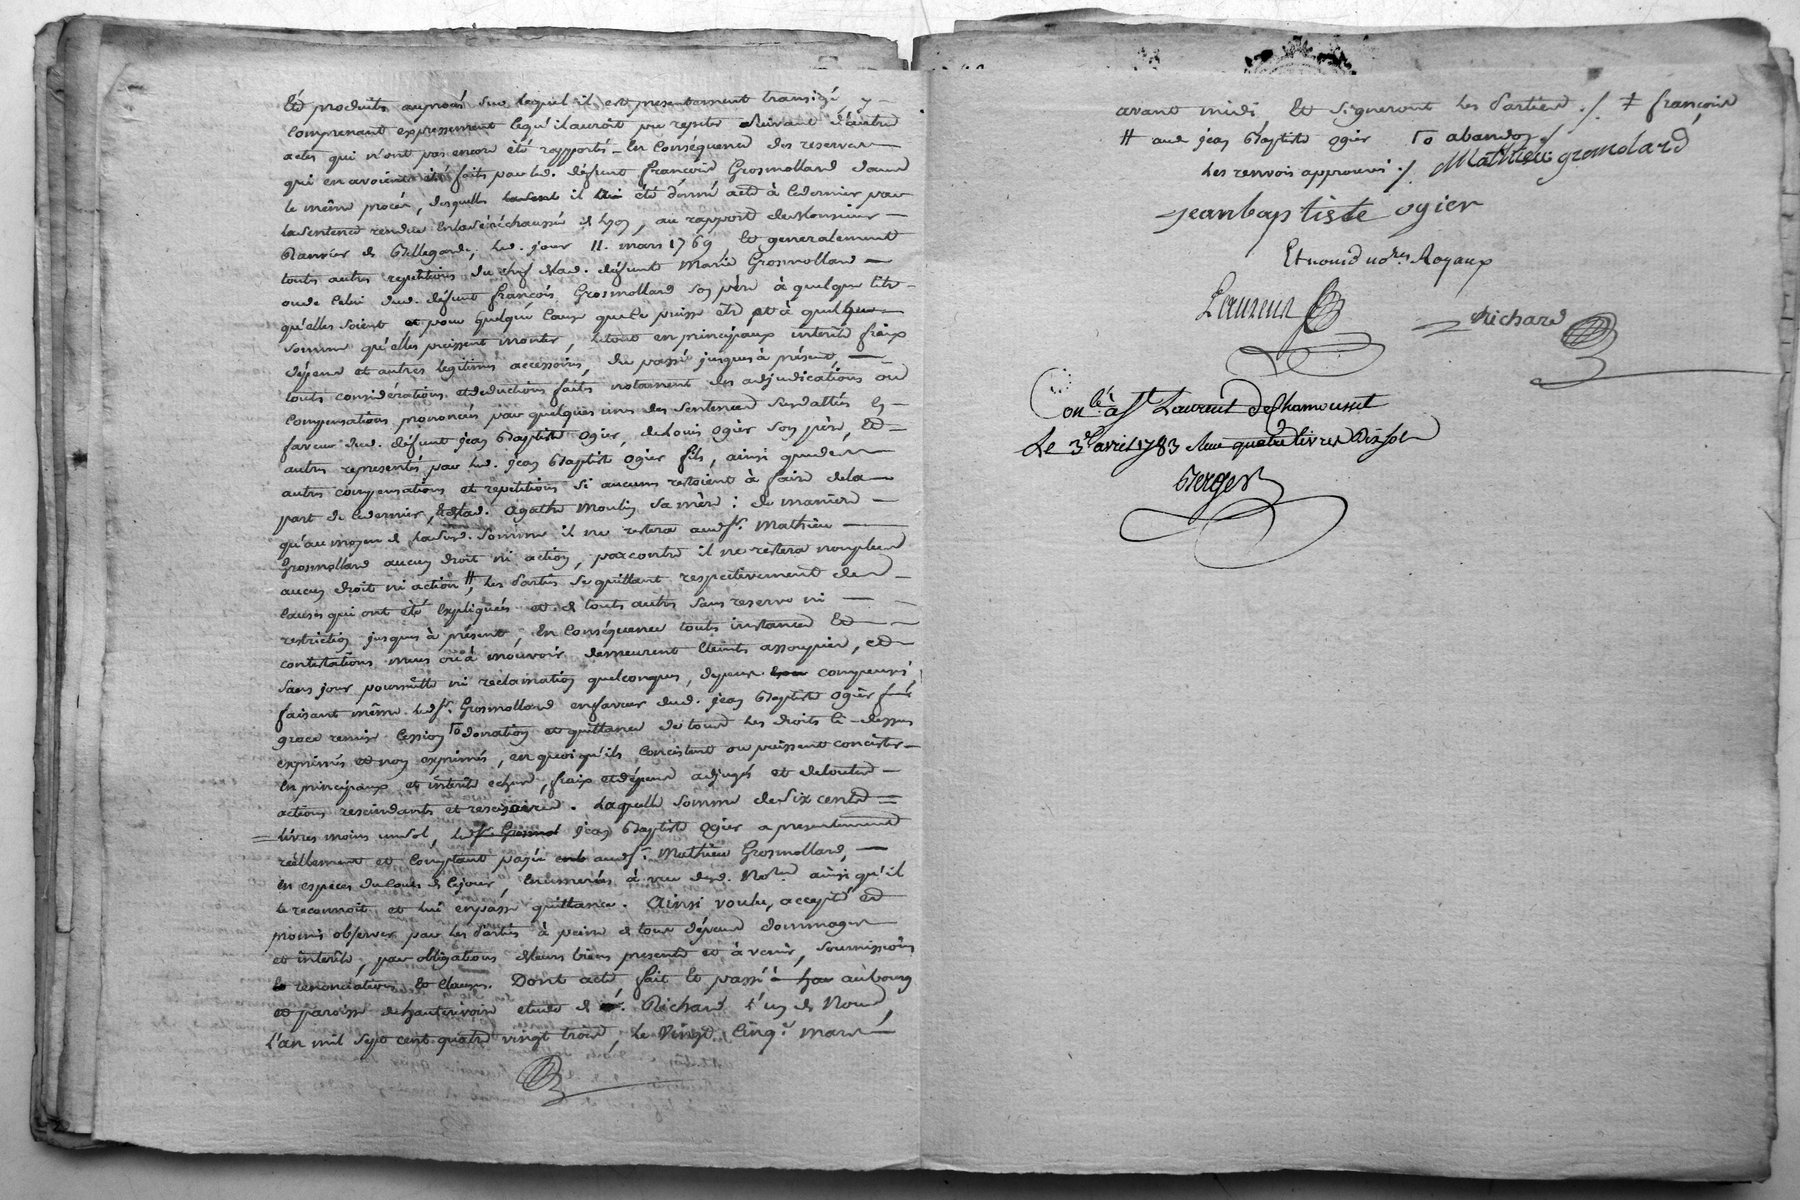 Et produits au procès sur lequel il est presentement transigé, y
comprenant expressement ce qu'il auroit pu repeter suivant d'autres
actes qui n'ont pas encore été rapportés. En conséquence des reserves
qui en avoient été faits par led. défunt françois Grosmolland dans
le même procès, desquelles il été donné acte à ce dernier par
la sentence rendue en la sénéchaussée de Lyon, au rapport de Monsieur
Ranvier de Bellegarde, led. jour 11. mars 1769, et generalement
touts autres repetitions du chef de lad. défunte Marie Grosmolland
ou de celui dud. défunt françois Grosmolland son père à quelque titre
qu'elles soient et pour quelque cause que ce puisse être et à quelque
somme qu'elles puissent monter, le tout en principaux interêts fraix
dépens et autres légitimes accessoires, du passé jusques à présent,
touts considérations et deductions faits notamment des adjudications ou
compensations prononcées par quelques uns des sentences susdattées en
faveur dud. défunt jean Baptiste Ogier, de Louis Ogier son père, et
autres representés par led. jean Baptiste Ogier fils, ainsi que des
autres compensations et repetitions si aucuns restoient à faire de la
part de ce dernier, et de lad. Agathe Moulin sa mère : de manière
qu'au moyen de lasusd. somme il ne restera aud. sr. Mathieu
Grosmolland aucun droit ni action, par contre il ne restera non plus
aucun droit ni action #, les Parties se quittant respectivement des
causes qui ont été expliquées et de touts autres sans reserve ni
restriction jusques à présent, En conséquence touts instances et
contestations mues ou à mouvoir demeurent éteints assoupies, et
sans jour poursuitte ni reclamation quelconques, depens compensés
faisant même led. sr. Grosmolland en faveur dud. jean Baptiste Ogier
grace remise cession donation et quittance de tous les droits ci-dessus
exprimés et non exprimés, en quoi qu'ils consistent ou puissent concister
en principaux et interêts echus, fraix et dépens adjugés et de toutes
actions rescindants et rescisoires. Laquelle somme de six cents
livres moins un sol, led. jean Baptiste Ogier a presentement
réellement et comptant payée aud. sr. Mathieu Grosmolland,
en espèces du cours de ce jour, nombrées à vue desd. Nores. ainsi qu'il
le reconnoit et lui en passe quittance. Ainsi voulu, accepté et
promis observer par les Parties à peine de tous dépens dommages
et interêts, par obligations de leurs biens presents et à venir, soumissions
renonciations et clauses. Dont acte, fait et passé au bourg
et paroisse de hauterivoire etude de Me. Richard l'un de Nous,
L'an mil sept cent quatre vingt trois, Le Vingt cinq. mars
avant midi, Et signeront Les Parties ./. ‡ françois
# aud jean Baptiste Ogier To abandon ./.
Les renvois approuvés ./. Mathieu gromolard
jean baptiste ogier
Et nous nores. Royaux
Laurent
Richard
Conlé. à St. Laurent de Chamousset
Le 3e. avril 1783 Reçu quatre livres Dix sols
Berger